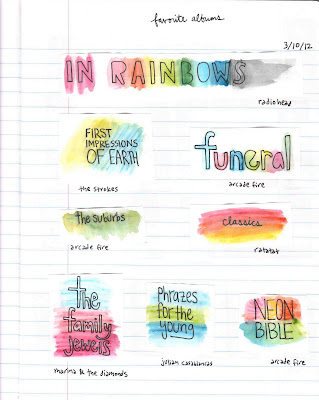 favorite albums
3/10/12
IN RAINBOWS
radiohead
FIRST
IMPRESSIONS
OF EARTH
the strokes
funeral
arcade fire
the suburbs
arcade fire
classics
ratatat
the
family
jewels
marina & the diamonds
phrazes
for the
young
julian casablancas
NEON
BIBLE
arcade fire